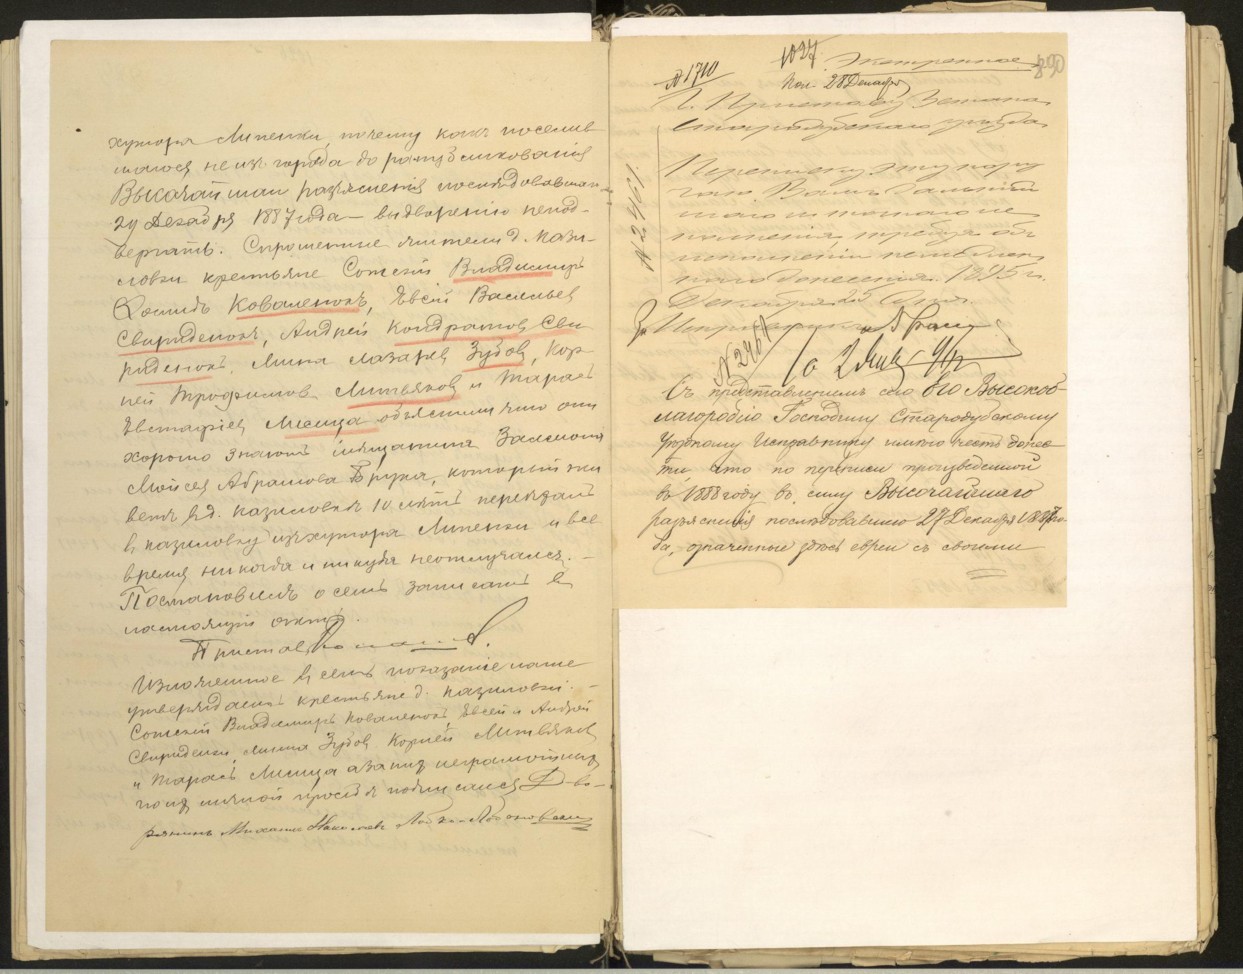 хутора Липенки, почему какъ поселив
шагося не изъ города до распубликованія
Высочайшаго разъясненія последовавшаго
29 Декабря 1887 года — выдворенію непод-
вергать. Спрошенные жители д. Кази-
ловки крестьяне Сотскій Владимиръ
Коваленокъ, Евсей Васильев
Свириденокъ, Андрей Кондратов Сви
риденокъ, Мина Лазарев Зубов, Кор
ней Трофимов Литвяков и Тарасъ
Евстафіев Лисица объяснили что они
хорошо знаютъ мещанина Залмона
Мойсея Абрамова который жи
ветъ в д. Казиловке 10 летъ переехалъ
в Казиловку изъ хутора Липенки и все
время никогда и никуда неотлучался. —
Постановилъ о семъ записать в
настоящій актъ.
Пристав
Изложенное в семъ показаніе наше
утверждаемъ крестьяне д. Казиловки. —
Сотскій Владимиръ Коваленокъ, Евсей и Андрей
Свириденки, Мина Зубов, Корней Литвяков
и Тарасъ Лисица а за них неграмотных
по их личной просьбе подписался Дво-
рянинъ Михаилъ Николаев
1027 Экстренное
№ 1710
Пол. 28 Декабря
Г. Приставу 3 стана
Стародубскаго уезда
Переписку эту пору
чаю Вамъ
исполненія, требуя объ
исполненіи
наго донесенія. 1895 г.
Декабря
№ 2461
За Исправника
№ 2464
Съ представленіемъ сего Его Высокоб-
лагородію Господину Стародубскому
Уездному Исправнику имею честь донес-
ти, что по переписи произведенной
въ 1888 году въ силу Высочайшаго
разъясненія последовавшаго 27 Декабря 1887 го-
да, означенные здесь евреи съ своими